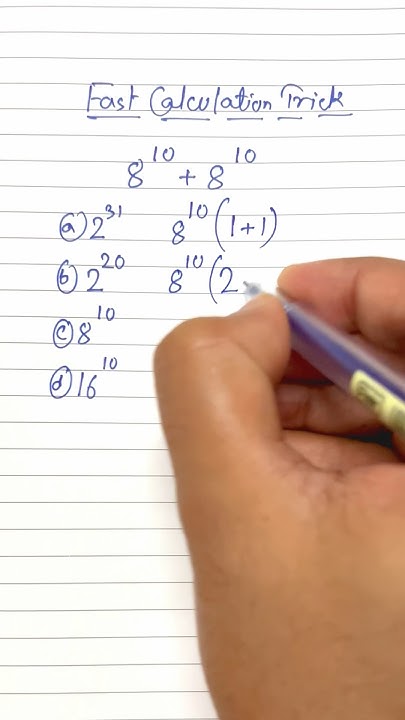 Fast Calculation Trick
8^10 + 8^10
(a) 2^31 8^10 (1+1)
(b) 2^20 8^10 (2
(c) 8^10
(d) 16^10